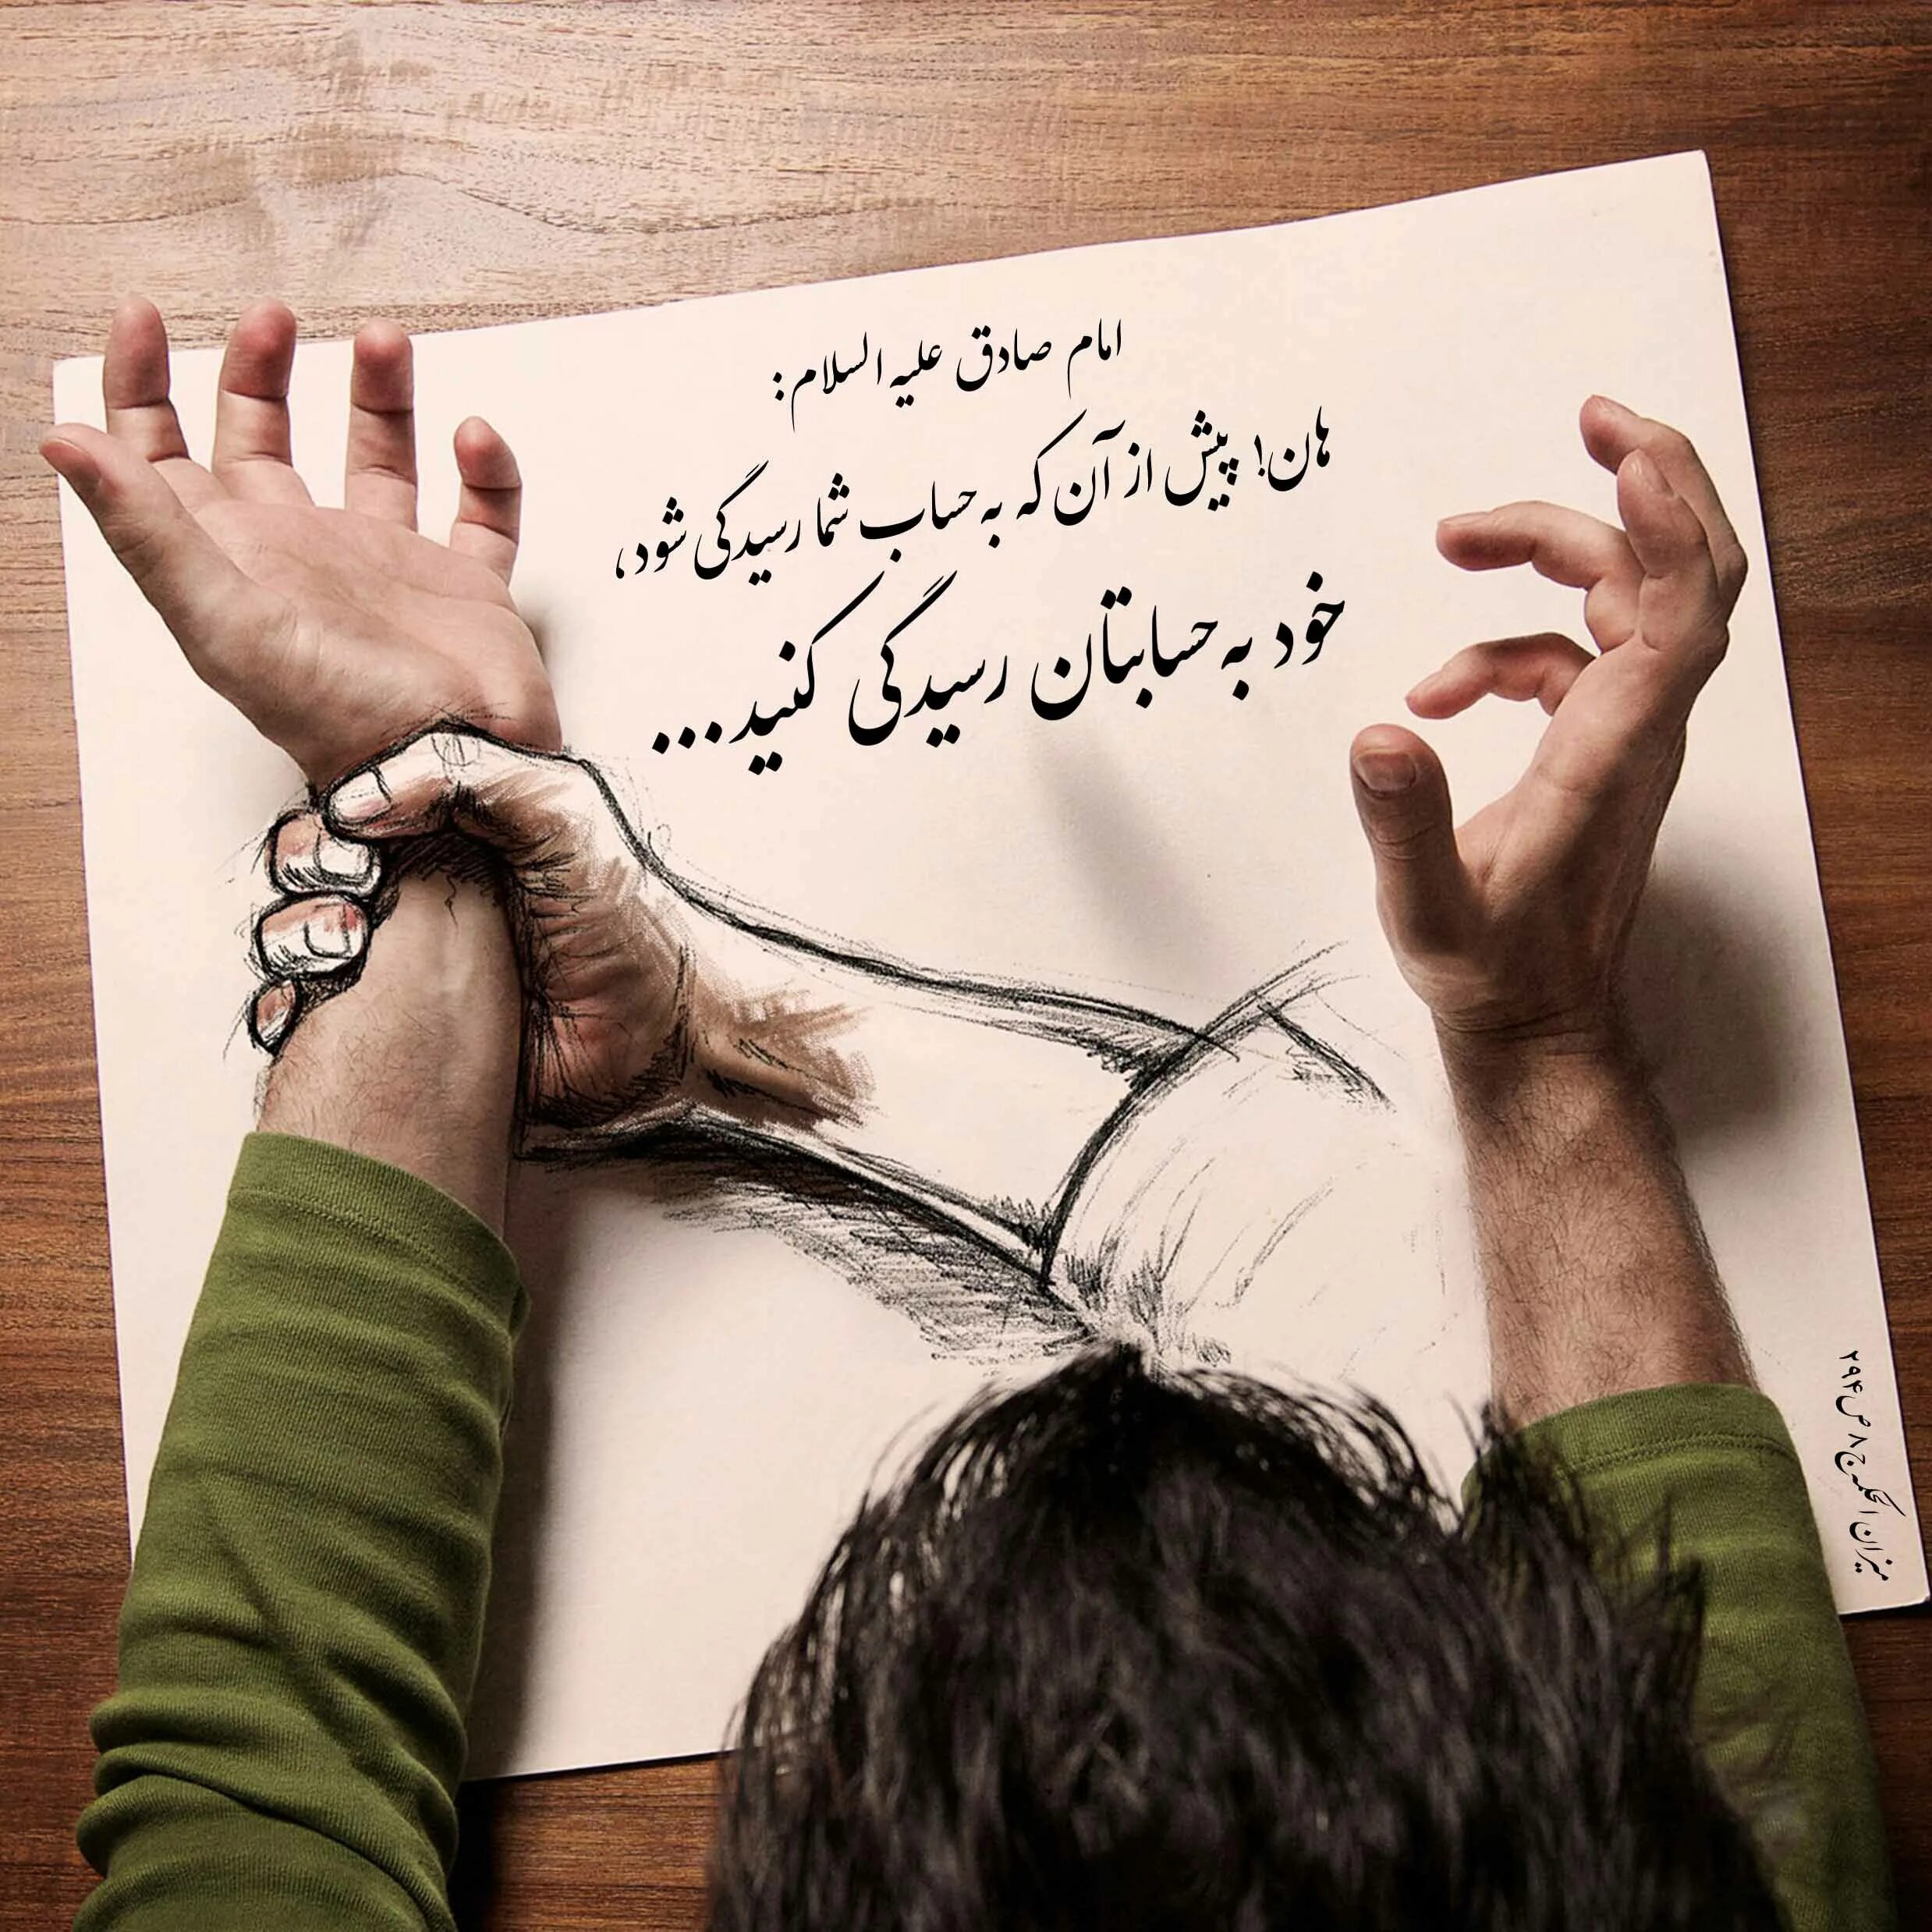 امام صادق علیه السلام:
هان! پیش از آن که به حساب شما رسیدگی شود،
خود به حسابتان رسیدگی کنید...
میزان الحکمه ج۸ ص۲۹۴